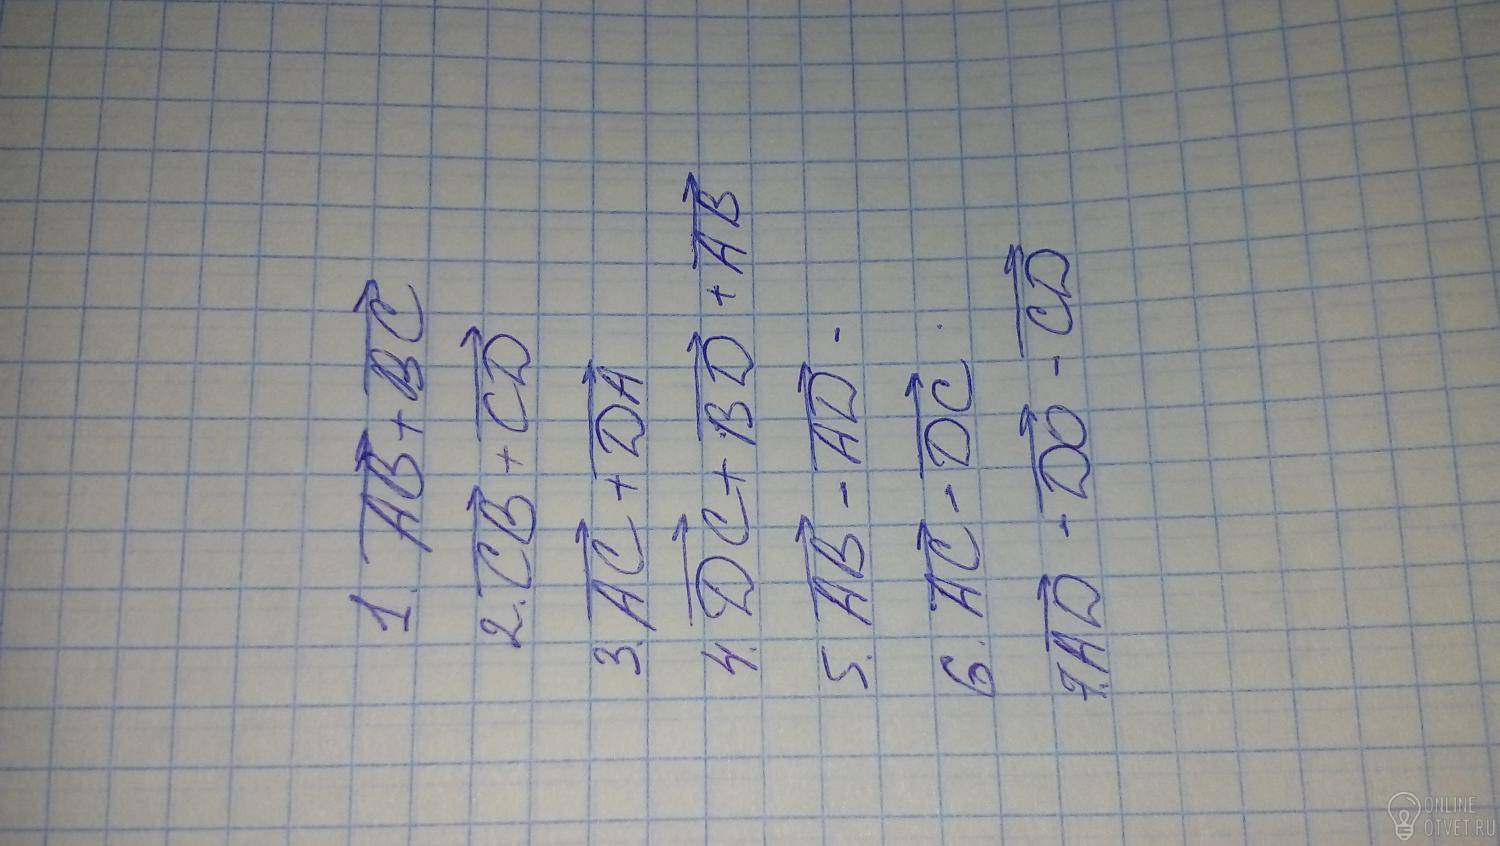 1. AB + BC
2. CB + CD
3. AC + DA
4. DC + BD + AB
5. AB - AD -
6. AC - DC
7. AD - DO - CD
ONLINE
OTVET.RU